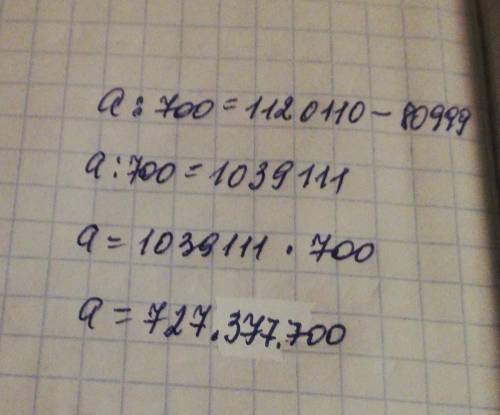 a : 700 = 1120110 - 80999
a : 700 = 1039111
a = 1039111 . 700
a = 727.377.700